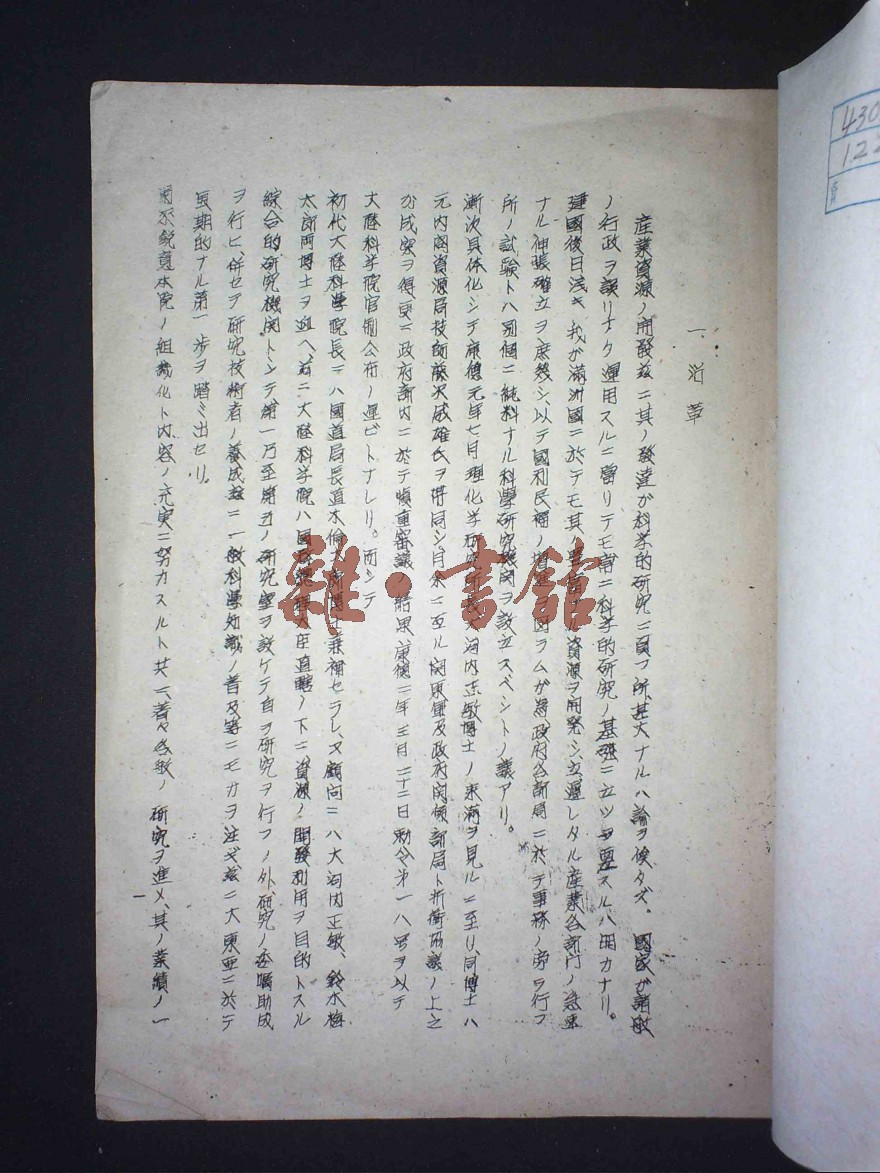 一、沿革
産業資源ノ開發玆ニ其ノ發達ガ科学的研究ニ負フ所、甚大ナルハ論ヲ俟タズ。國家ガ諸般
ノ行政ヲ誤リナク運用スルニ當リテモ常ニ科学的研究ノ基礎ニ立ツヲ要スルハ明カナリ。
建國後日浅キ我が滿洲國ニ於テモ其ノ豊富ナル資源ヲ開発シ立遅レタル産業各部門ノ急速
ナル伸張確立ヲ庶幾シ以テ國利民福ノ増進ヲ図ラムガ為、政府各部局ニ於テ事務ノ傍ラ行フ
所ノ試験トハ別個ニ純粋ナル科學研究機関ヲ設立スベシトノ議アリ。
漸次具体化シテ康德元年七月理化学研究所長大河内正敏博士ノ来満ヲ見ルニ至リ、同博士ハ
元内閣資源局技師藤沢威雄氏ヲ帯同シ、月余ニ亙ル関東軍及政府関係部局ト折衝協議ノ上之
ガ成案ヲ得更ニ政府部内ニ於テ慎重審議ノ結果康德二年三月二十二日勅令第一八号ヲ以テ
大陸科学院官制公布ノ運ビトナレリ。而シテ
初代大陸科學院長ニハ國道局長直木倫太郎博士兼補セラレ、又顧問ニハ大河内正敏、鈴木梅
太郎両博士ヲ迎ヘ、玆ニ大陸科学院ハ國務総理大臣直轄ノ下ニ資源ノ開發利用ヲ目的トスル
綜合的研究機関トシテ第一乃至第ノ研究室ヲ設ケテ自ラ研究ヲ行フノ外、研究ノ委嘱助成
ヲ行ヒ、併セテ研究技術者ノ養成玆ニ一般科學知識ノ普及等ニモ力ヲ注ギ玆ニ大東亜ニ於テ
劃期的ナル第一歩ヲ踏ミ出セリ。
爾来鋭意本院ノ組織化ト内容ノ充実ニ努力スルト共ニ、著々各般ノ研究ヲ進メ、其ノ業績ノ一
一
430
122
雜·書館